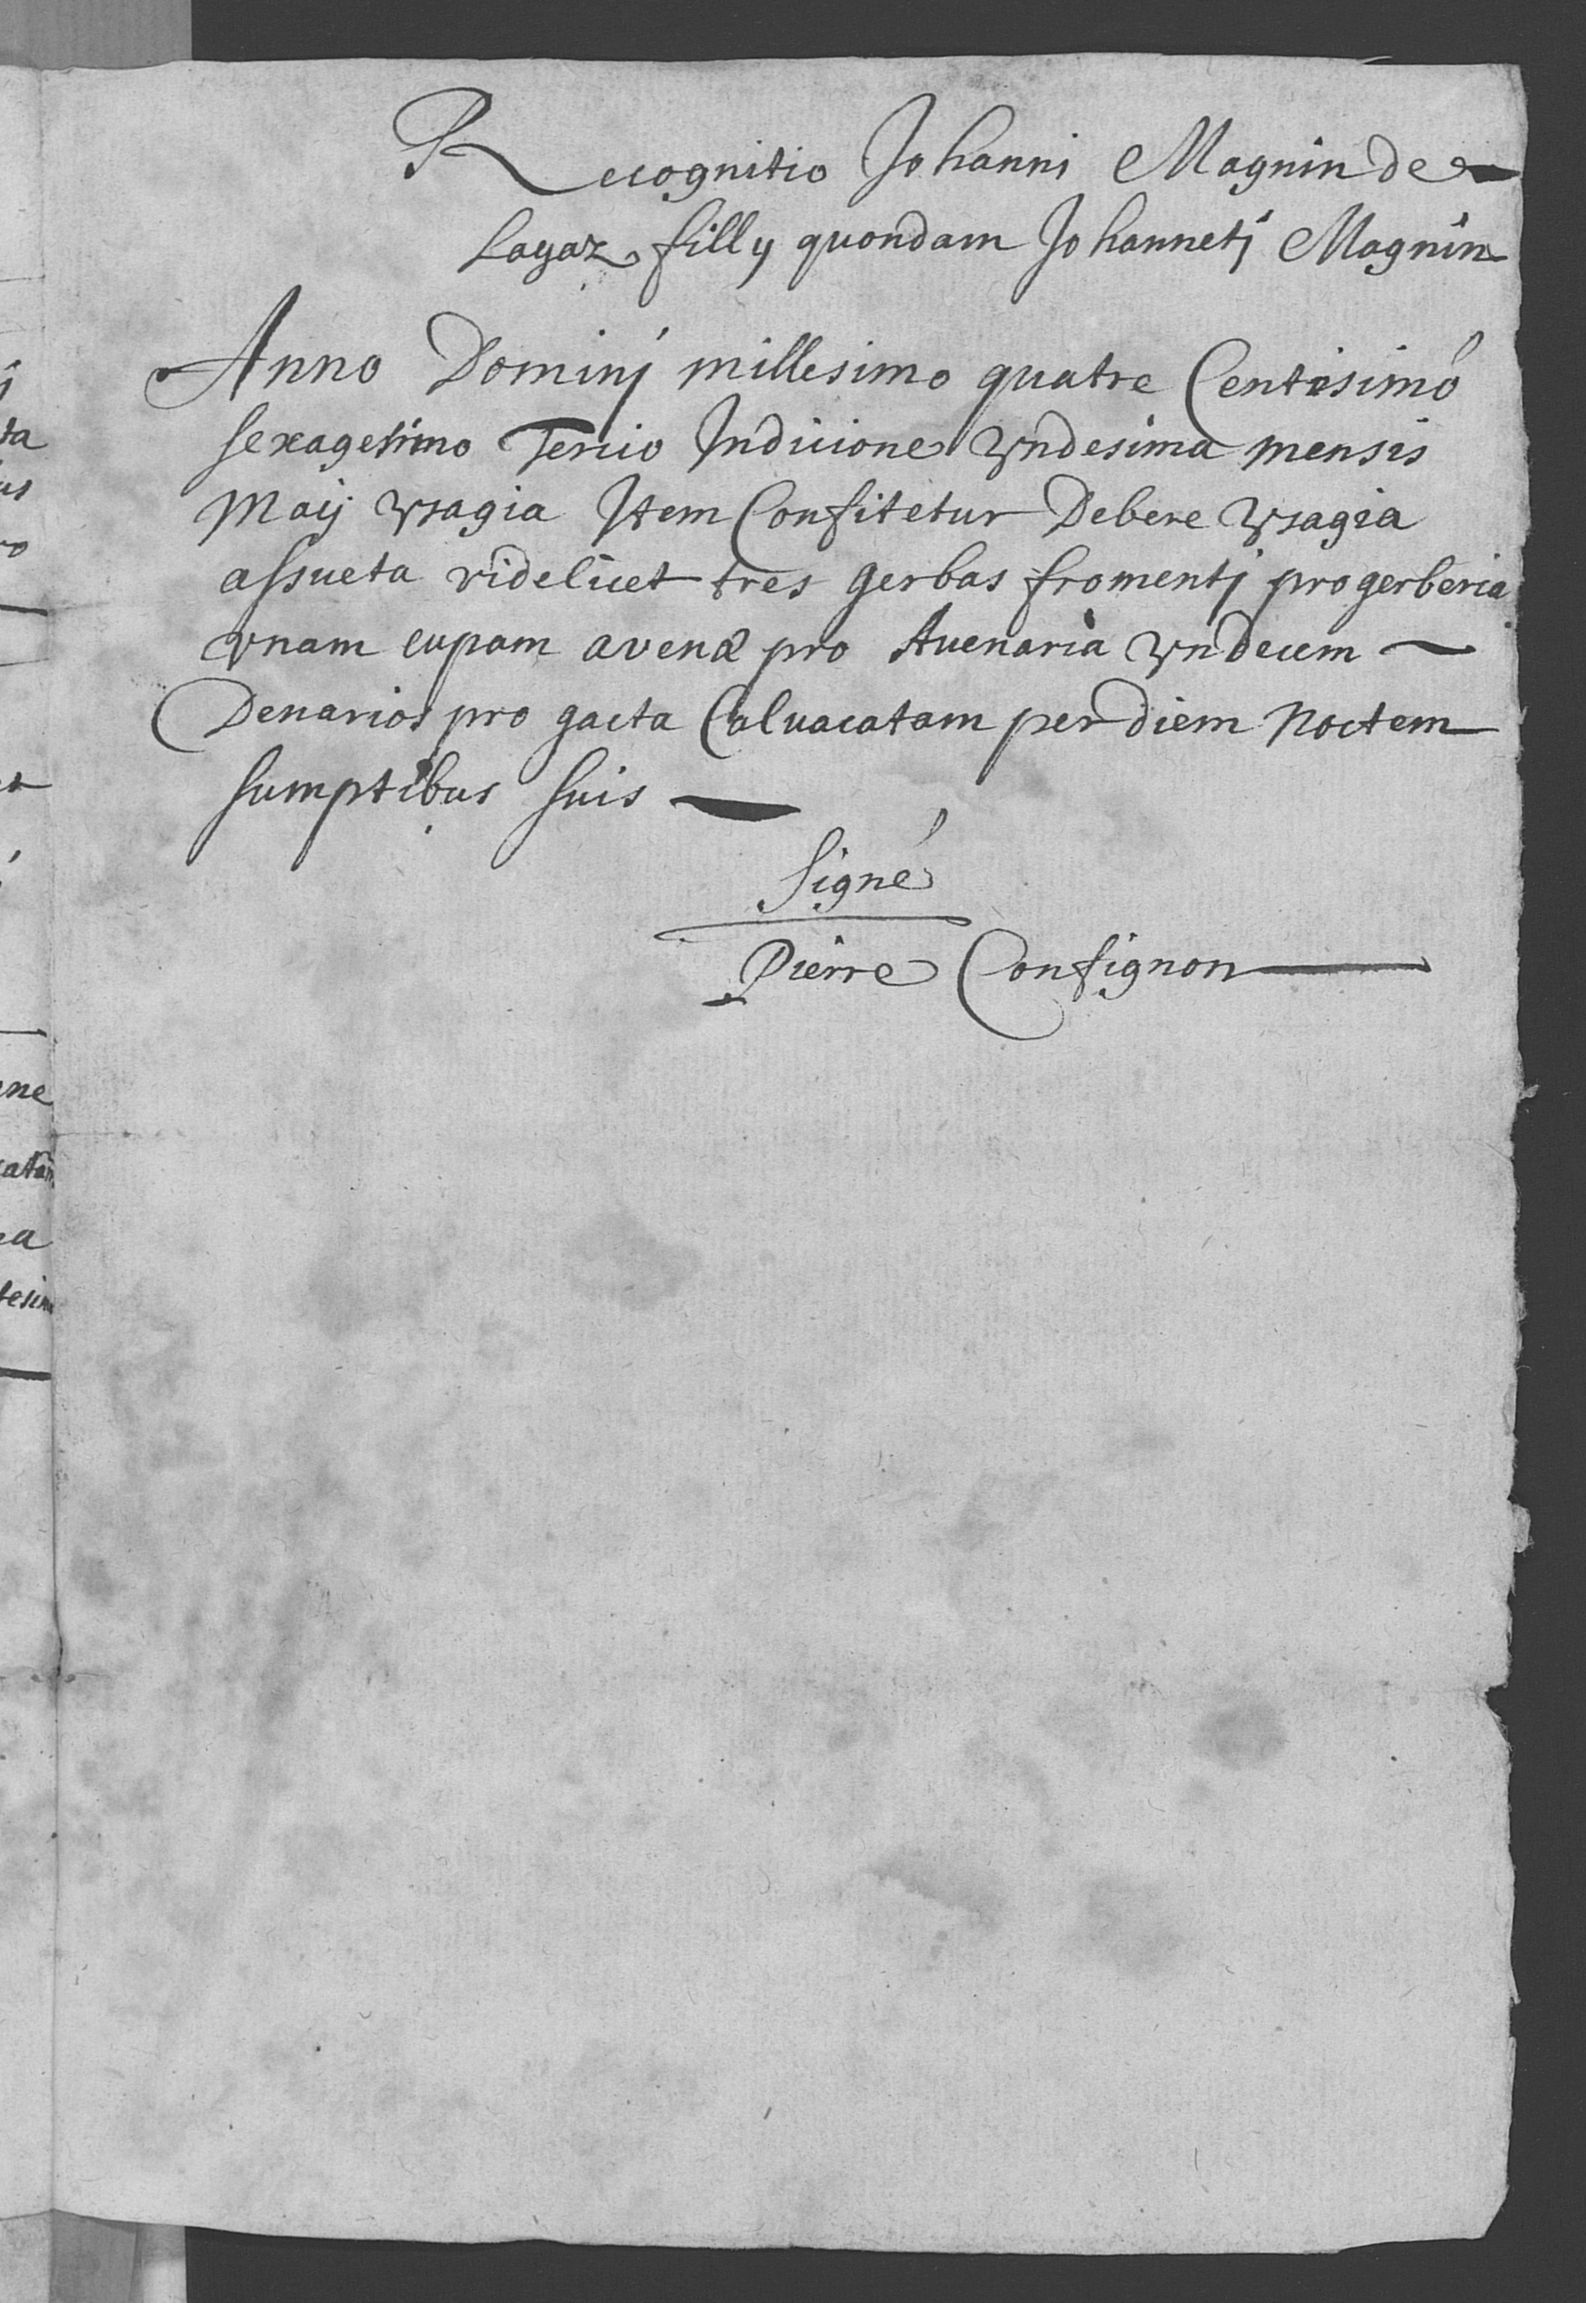 Recognitio Johanni Magnin de
Layaz filly quondam Johannetj Magnin
Anno Dominj millesimo quatre Centesimo
sexagesimo Tercio Indicione Vndesima mensis
Maij Vsagia Item Confitetur Debere Vsagia
assueta videlicet tres gerbas fromentj pro gerberia
vnam cupam avenæ pro Auenaria Vndecem
Denarios pro gacta Caluacatam per diem Noctem
sumptibus suis
Signé
Pierre Consignon
ta
us
ro
ne
catam
ea
tesim